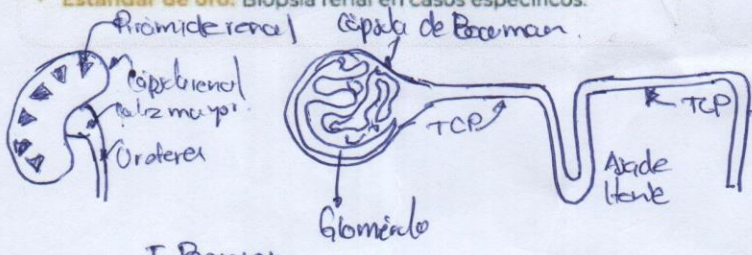 Estándar de oro: Biopsia renal en casos específicos.
Pirámide renal
Cápsula de Bowman.
Cápsula renal
Caliz mayor
Uréteres
TCP
TCP
Asa de
Henle
Glomérulo